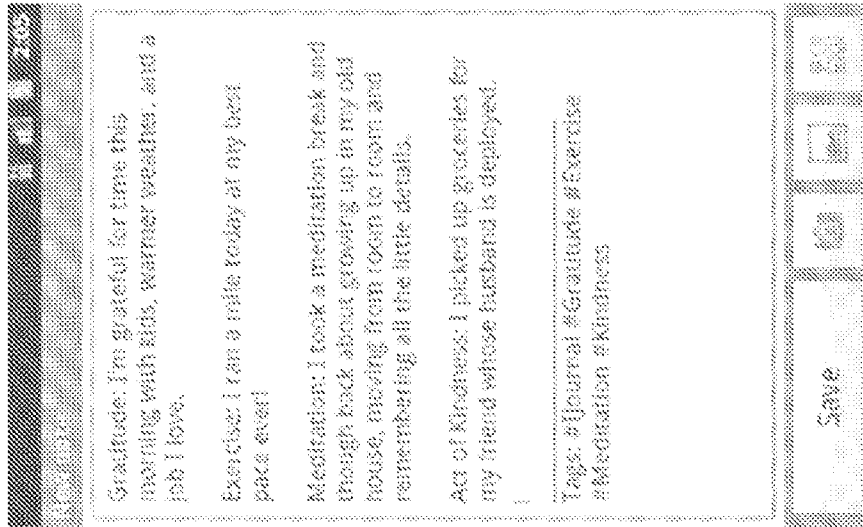 2:05
Gratitude: I'm grateful for time this
morning with kids, warmer weather, and a
job I love.
Exercise: I ran a mile today at my best
pace ever!
Meditation: I took a meditation break and
though back about growing up in my old
house, moving from room to room and
remembering all the little details.
Act of Kindness: I picked up groceries for
my friend whose husband is deployed.
Tags: #Journal #Gratitude #Exercise
#Meditation #Kindness
Save